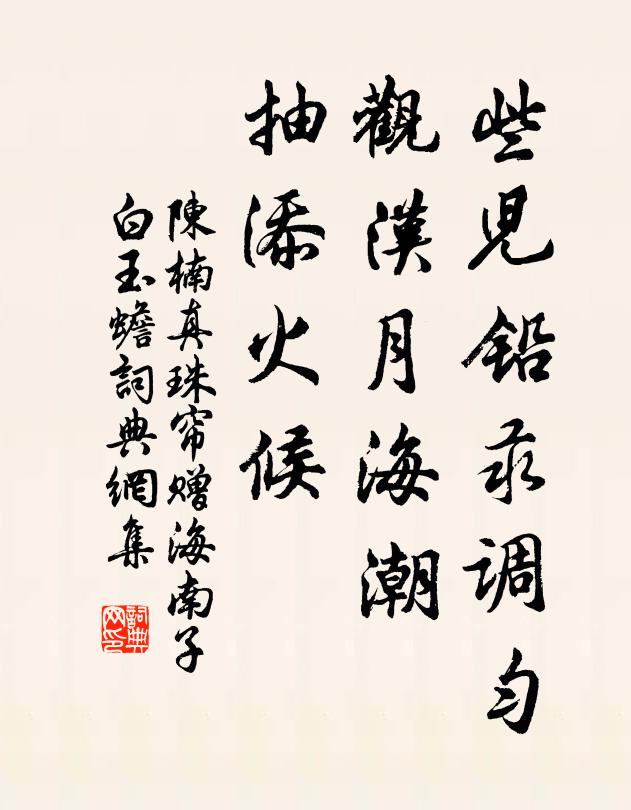 些兒鉛汞調勻
觀漢月海潮
抽添火候
陳楠真珠帘贈海南子
白玉蟾詞典網集
詞典網印